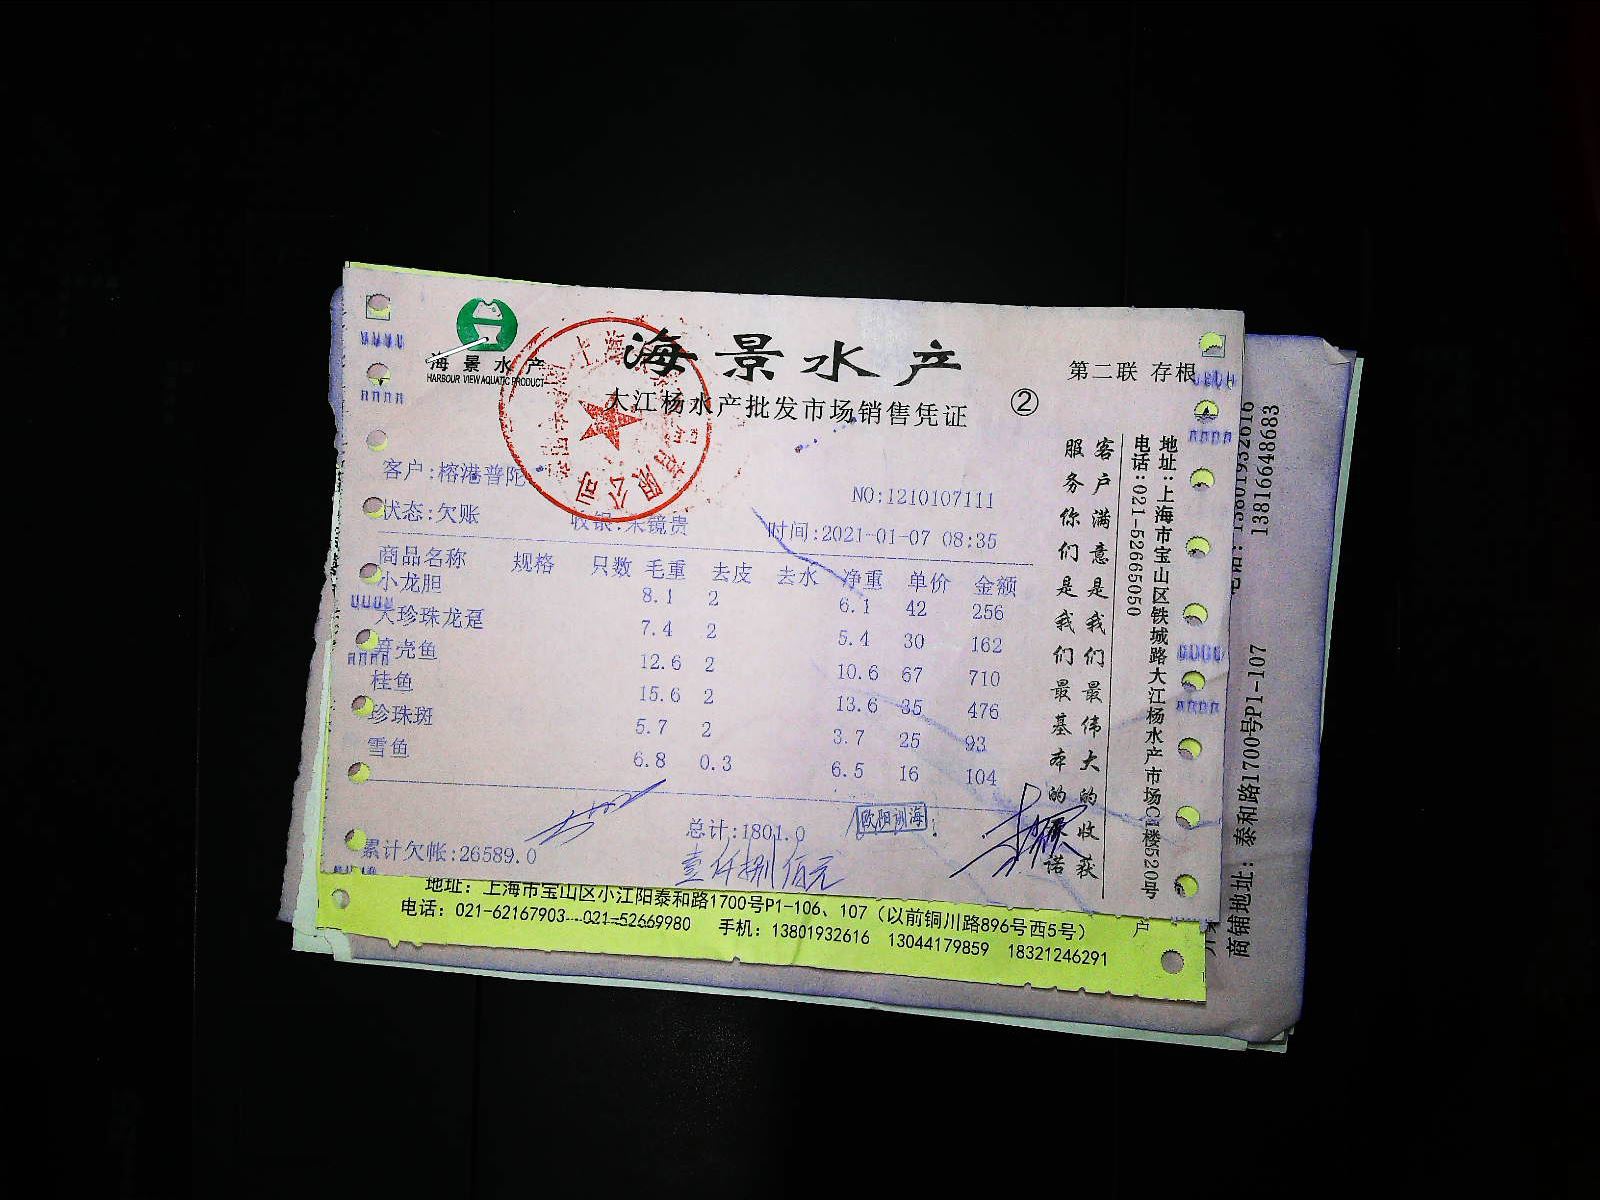 海景水产
HARBOUR VIEW AQUATIC PRODUCT
海景水产
大江杨水产批发市场销售凭证
②
第二联 存根
客户:榕港普陀
NO:1210107111
状态:欠账
收银:朱镜贵
时间:2021-01-07 08:35
商品名称 规格 只数 毛重 去皮 去水 净重 单价 金额
小龙胆 8.1 2 6.1 42 256
大珍珠龙趸 7.4 2 5.4 30 162
笋壳鱼 12.6 2 10.6 67 710
桂鱼 15.6 2 13.6 35 476
珍珠斑 5.7 2 3.7 25 93
雪鱼 6.8 0.3 6.5 16 104
总计:1801.0
累计欠帐:26589.0
壹仟捌佰元
客户满意是我们最伟大的收获
服务你们是我们最基本的承诺
地址:上海市宝山区铁城路大江杨水产市场C1楼520号
电话:021-52665050
地址: 上海市宝山区小江阳泰和路1700号P1-106、107（以前铜川路896号西5号）
电话: 021-62167903 021-52669980 手机: 13801932616 13044179859 18321246291
户
商铺地址: 泰和路1700号P1-107
13801932616
13816648683